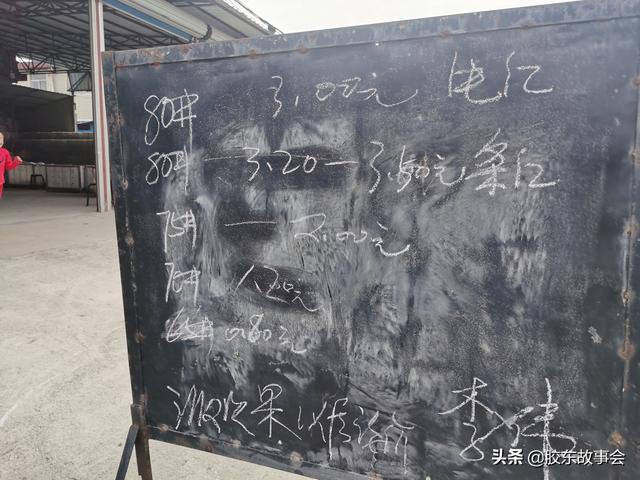 80# 3.00元 片红
80# — 3.20 — 3.50元 条红
75# — 2.00元
70# 1.20元
65# 0.80元
次果 论价 李伟
头条 @胶东故事会